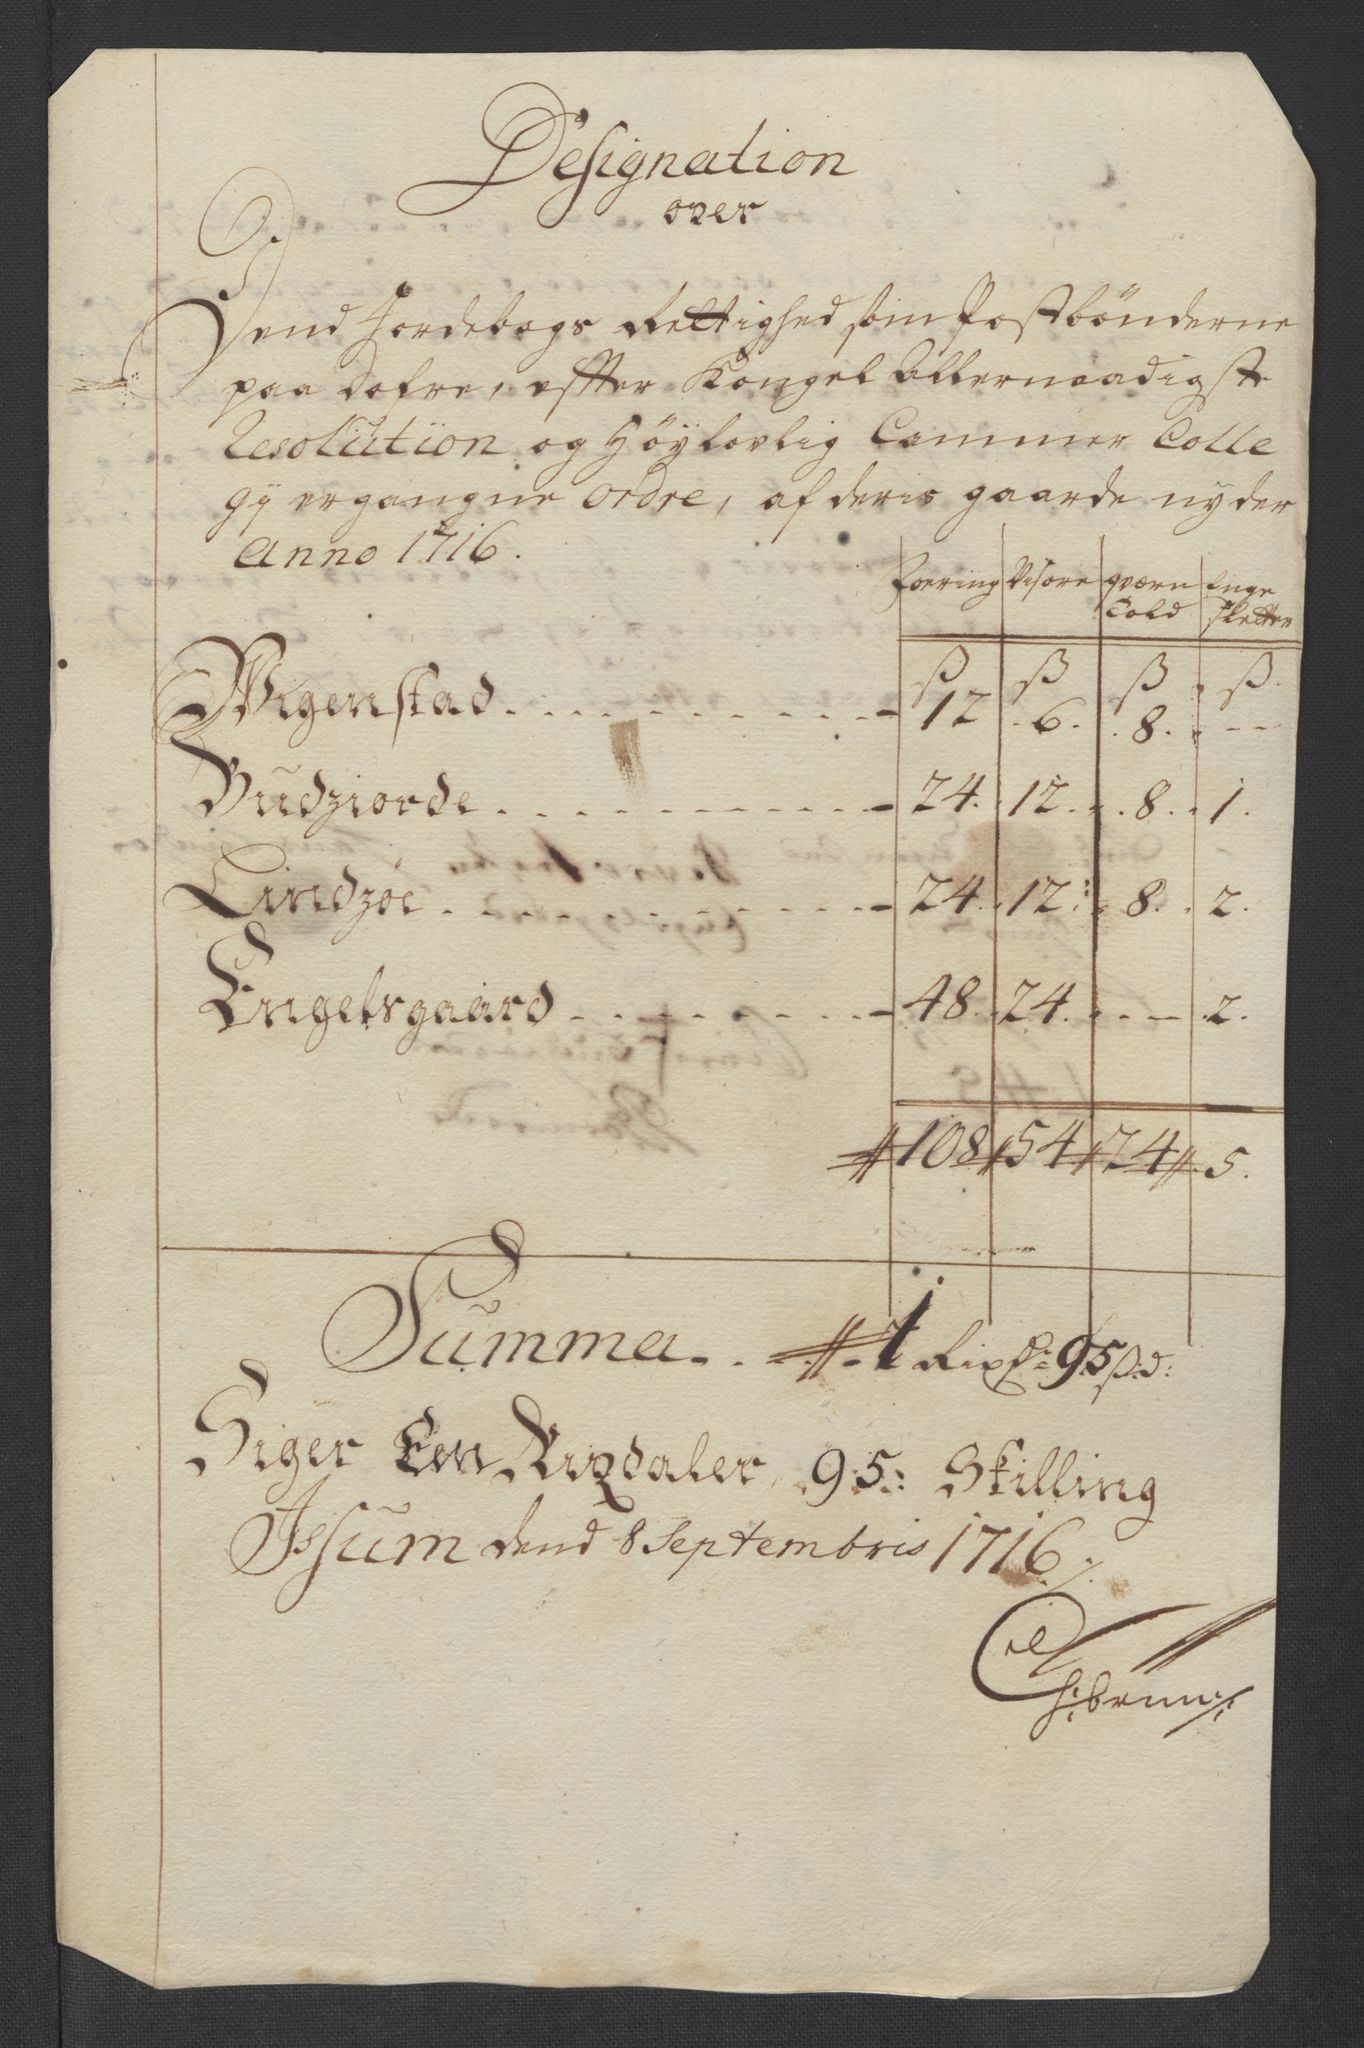 Designation
over
Dend Jordebogs Rettighed som Postbönderne
paa Dofre, efter Kongel Allernaadigste
Resolution og Höylovlig Cammer Colle
gij ergangne Ordre, af deris gaarde nyder
Anno 1716.
Foering Visøre qværn Enge
Told sletter
ß ß ß ß
Wigenstad 12 6. 8. - -
Budziorde 24. 12. 8. 1.
Lindzöe 24. 12. 8. 2.
Engelsgaard 48. 24. - - 2.
108 54 24 5.
Summa 1 Rixd: 95 ß d:
Siger Een Rixdaler 95: Skilling
Issum dend 8 Septembris 1716 ./.
H: brun